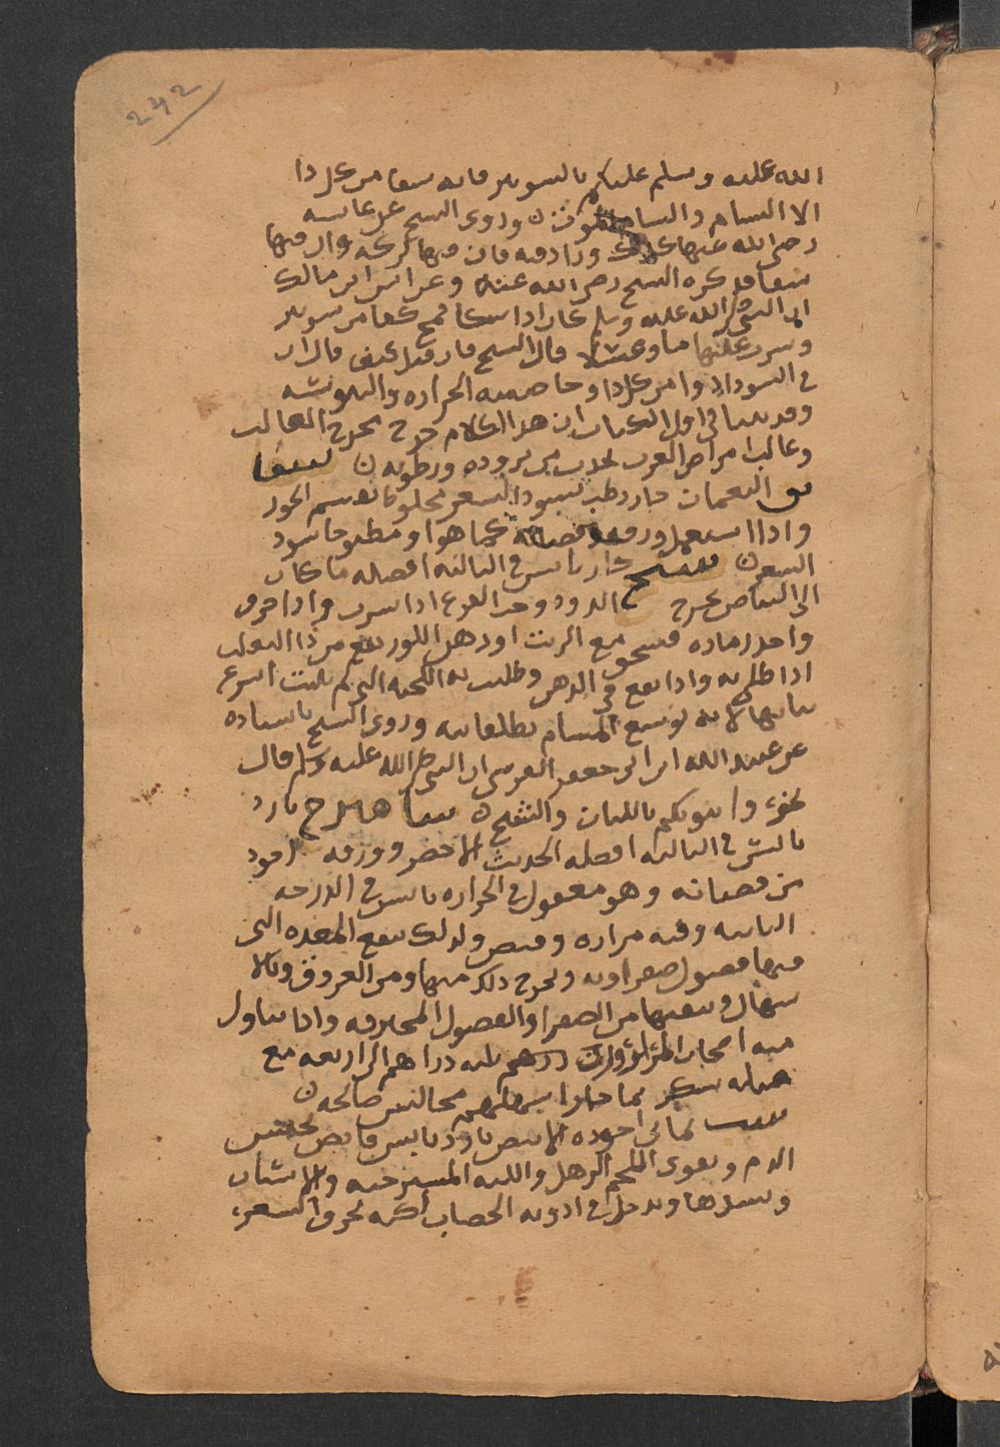 ٢٤٢
الله عليه وسلم عليكم بالشونيز فانه شفا من كل دا
الا السام والسام الموت ن وروى الشيخ عن عايشه
رضى الله عنها كذلك وزاد فيه فان فيها بركه وان فيها
شفا قد كره الشيخ رضى الله عنه وعن انس ابن مالك
ان النبى صلى الله عليه وسلم كان اذا اشتكا قمح كفا من شونيز
وشرب عليها ما وعسلا قال الشيخ فان قيل كيف قال ان
فى السودا دوا من كل دا وخاصيته الحراره واليبوسه
وقد بينا فى اول الكتاب ان هذا الكلام خرج مخرج الغالب
وغالب امراض العرب تحدث من بروده ورطوبه ن شقا
يق النعمان حار رطب يسود الشعر مخلوطا بقشر الجوز
واذا استعمل ورقه وقضبانه كما هو او مطبوخا سود
الشعر ن شيح حار يابس فى الثالثه افضله ما كان
الى البياض يخرج الدود وحب القرع اذا شرب واذا حرق
واخذ رماده فسحق مع الزيت او دهن اللوز نفع من دا الثعلب
اذا طلى به واذا نقع فى الدهن وطليت به اللحيه التى لم تنبت اسرع
نباتها لانه يوسع المسام بلطافته وروى الشيخ باسناده
عن عبد الله ابن ابى جعفر القرشى ان النبى صلى الله عليه وسلم قال
بخروا بيوتكم باللبان والشيح ن شاهترج بارد
يابس فى الثانيه افضله الحديث الاخضر وورقه اجود
من قضبانه وهو معقول فى الحراره يابس فى الدرجه
الثانيه وفيه مراره وقبض ولذلك ينفع المعده التى
فيها فضول صفراويه ويخرج ذلك منها ومن العروق والا
سهال وينقيها من الصفرا والفضول المحترقه واذا تناول
منه اصحاب درهم ثلثه دراهم الى اربعه مع
مثله سكر بما حار مجالس صالحه ن
شب يمانى اجوده الابيض بارد يابس قابض يحبس
الدم ويقوى اللحم الرهل واللثه المسترخيه والاسنان
ويشدها ويدخل فى ادويه الخضاب لكنه يحرق الشعر،